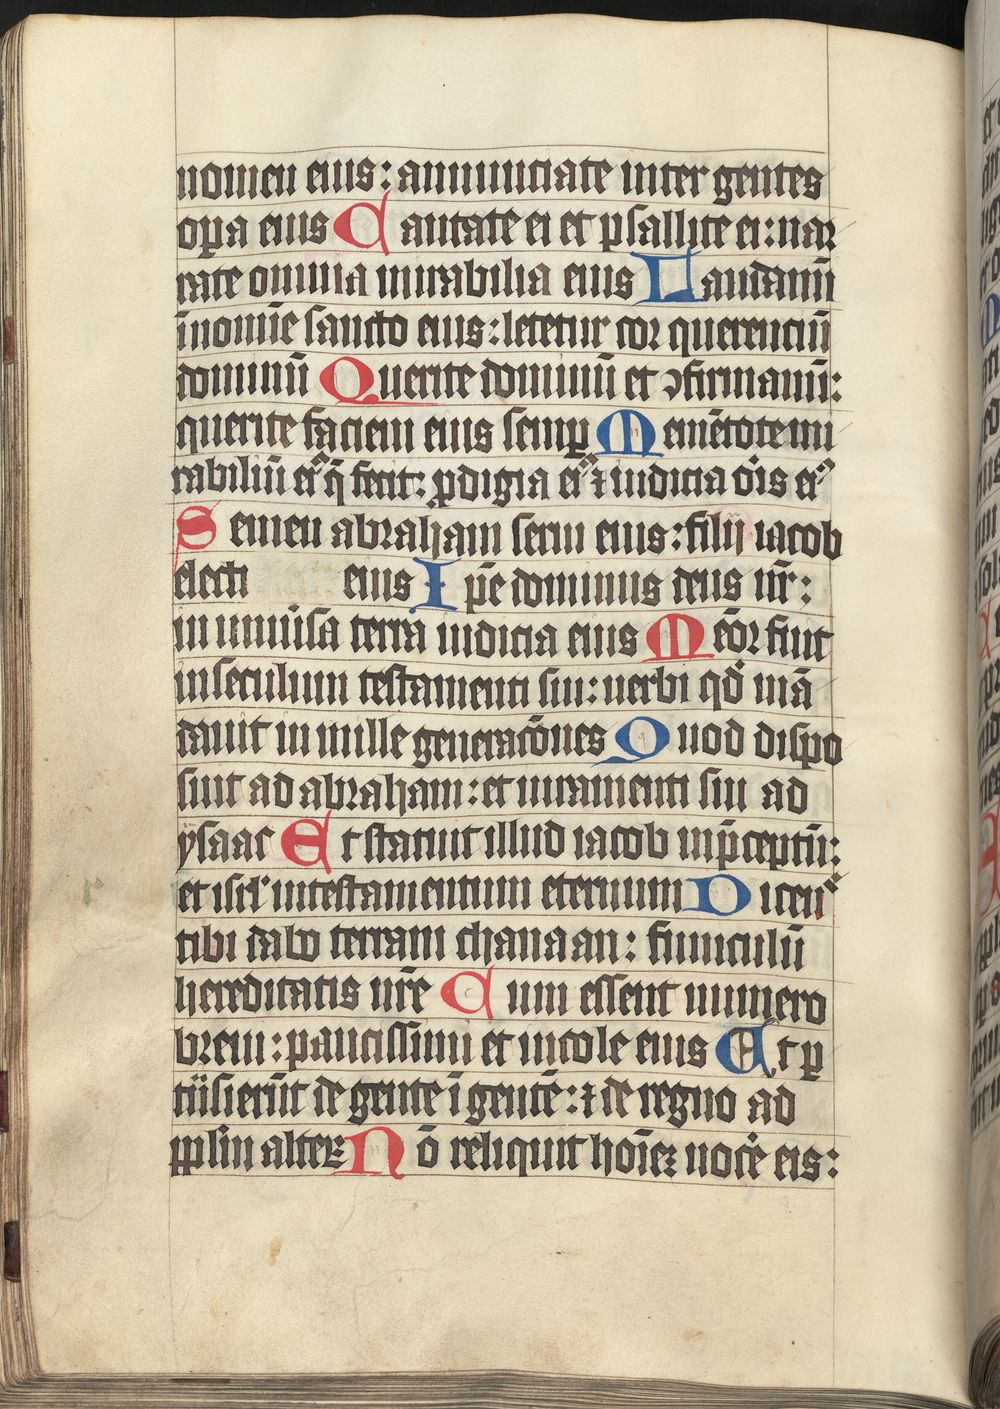 nomen eius: annunciate inter gentes
oꝑa eius Cantate ei et psallite ei: nar
rate omnia mirabilia eius Laudamī
ī nomīe sancto eius: letetur cor querenciū
dominū Querite dominū et ꝯfirmamī:
querite faciem eius semꝑ Memētote mi
rabiliū eiꝰ q̄ fecit: ꝓdigia eiꝰ ⁊ iudicia oris eiꝰ
Semen abraham serui eius: filij iacob
electi eius Ip̄e dominus deus nr̄:
in uniuisa terra iudicia eius Meōr fuit
in seculum testamenti sui: uerbi qd̄ mā
dauit in mille generacōnes Quod dispo
suit ad abraham: et iuramenti sui ad
ysaac Et statuit illud iacob in p̄ceptū:
et isrl̄ in testamentum eternum Dicenˢ
tibi dabo terram chanaan: funiculū
hereditatis nr̄e Cum essent numero
breui: paucissimi et incole eius Et ꝑ
tn̄sierūt de gente ī gentē: ⁊ de regno ad
pplm̄ alterꝝ Nō reliquit hoīeꝫ nocē̄ eis: